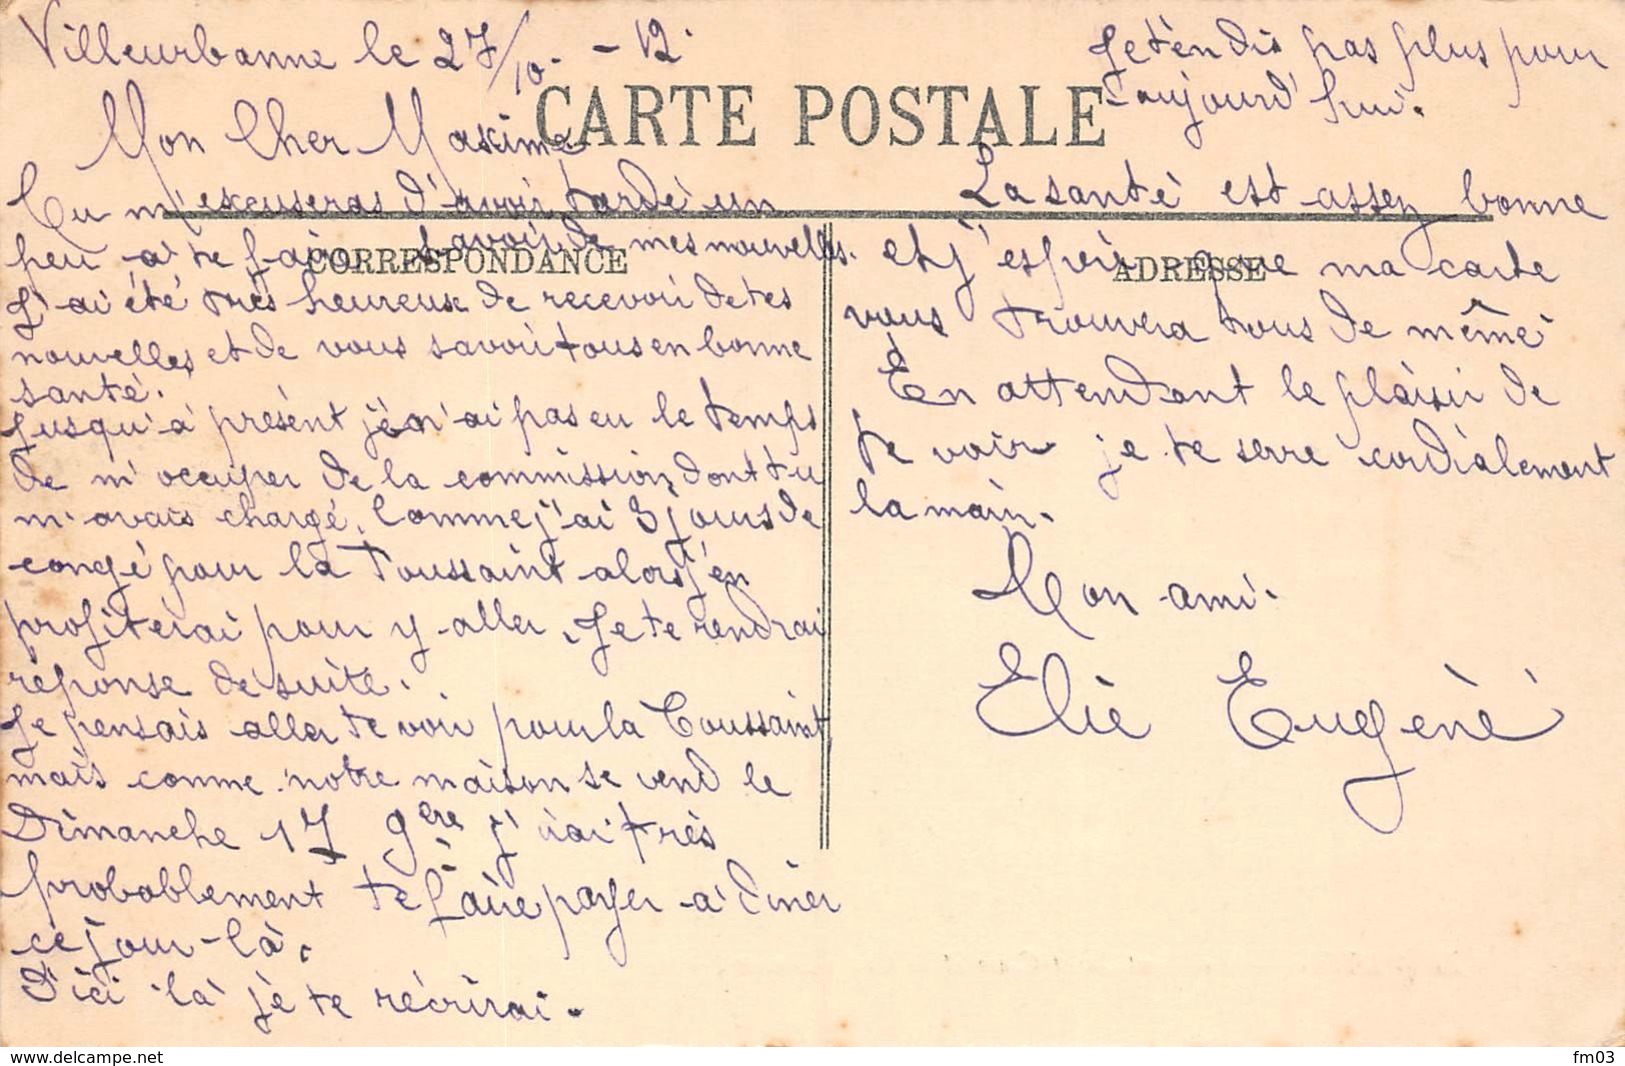 Villeurbanne le 27/10 - 12.
CARTE POSTALE
Mon Cher Maxime
Tu m'excuseras d'avoir tardé un
peu a te faire savoir de mes nouvelles.
CORRESPONDANCE
J'ai été très heureuse de recevoir de tes
nouvelles et de vous savoir tous en bonne
santé.
Jusqu'à présent je n'ai pas eu le temps
de m'occuper de la commission dont tu
m'avais chargé. Comme j'ai 3 jours de
congé pour la Toussaint alors j'en
profiterai pour y aller. Je te rendrai
réponse de suite.
Je pensais aller te voir pour la Toussaint,
mais comme notre maison se vend le
Dimanche 17 9ère j'irai très
probablement te faire payer a diner
ce jour-là.
D'ici là je te récrirai.
Je t'en dis pas plus pour
aujourd'hui.
La santé est assez bonne
et j'espère que ma carte
ADRESSE
vous trouvera tous de même
En attendant le plaisir de
te voir je te serre cordialement
la main.
Mon ami.
Elie Eugène
www.delcampe.net
fm03